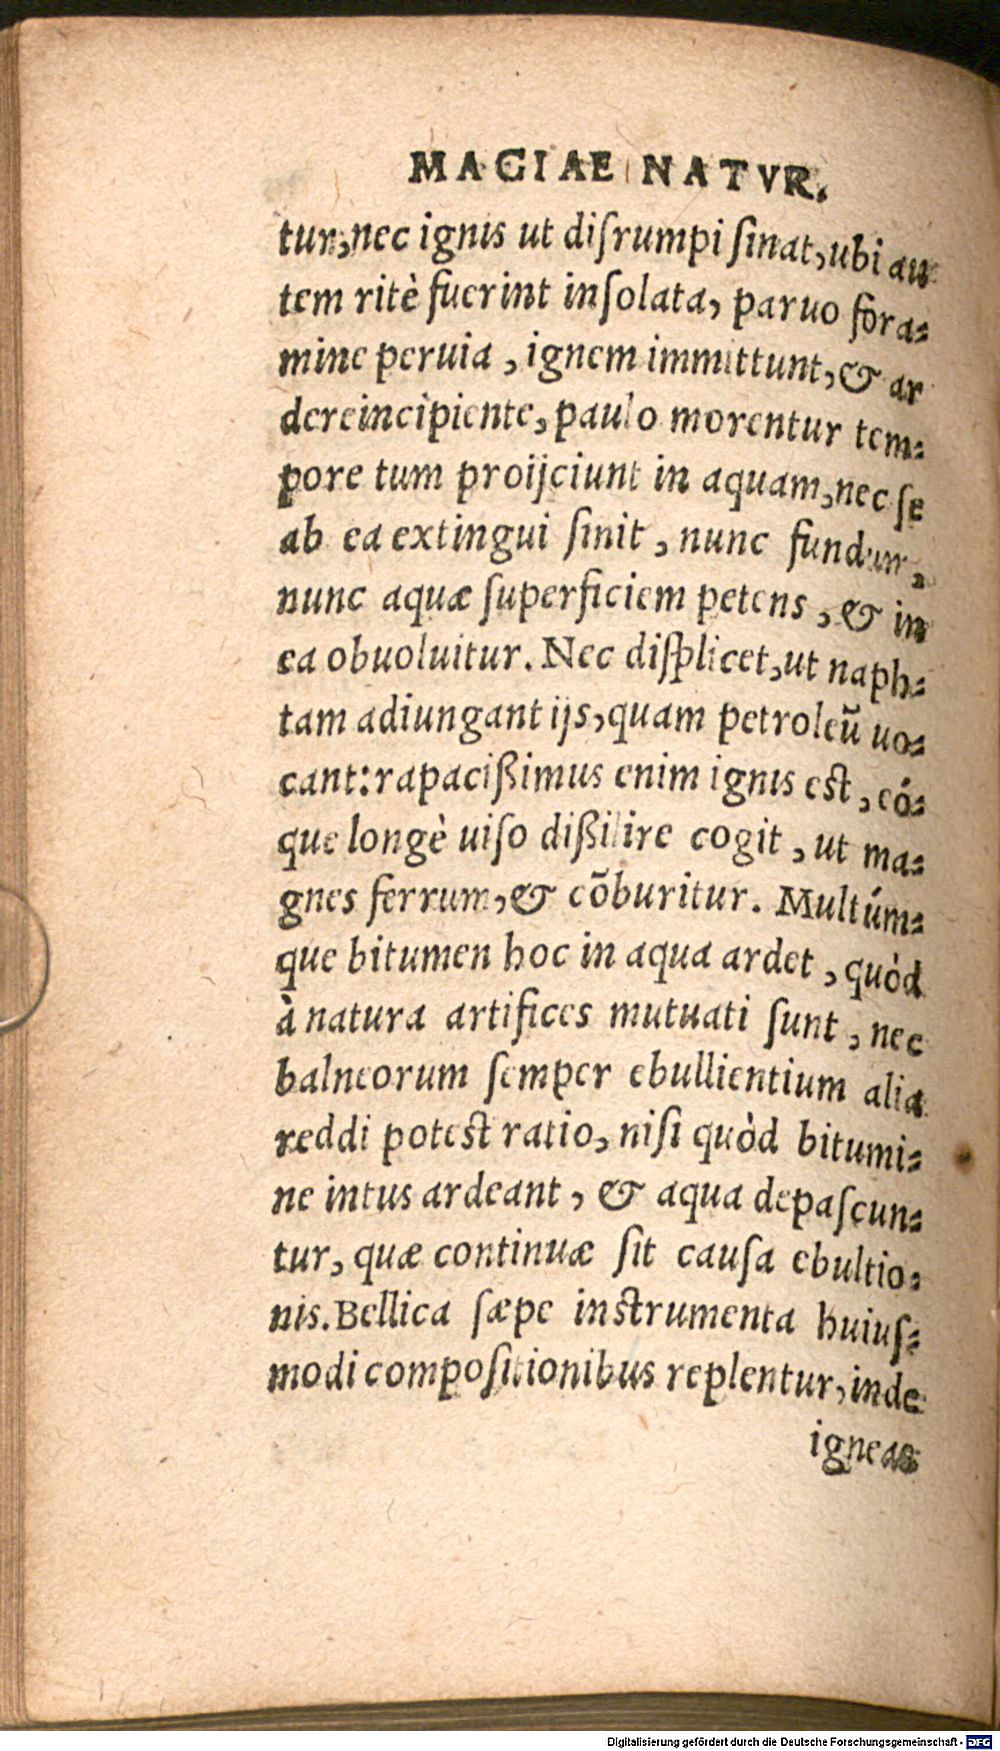 MAGIAE NATVR.
tur, nec ignis ut disrumpi sinat, ubi au
tem ritè fuerint insolata, paruo fora=
mine peruia, ignem immittunt, & ar
dereincipiente, paulo morentur tem=
pore tum proijciunt in aquam, nec se
ab ea extingui sinit, nunc fundum,
nunc aquæ superficiem petens, & in
ea obuoluitur. Nec displicet, ut naph=
tam adiungant ijs, quam petroleũ uo=
cant: rapacißimus enim ignis est, eó=
que longè uiso dißilire cogit, ut ma=
gnes ferrum, & cõburitur. Multúm=
que bitumen hoc in aqua ardet, quòd
à natura artifices mutuati sunt, nec
balneorum semper ebullientium alia
reddi potest ratio, nisi quòd bitumi=
ne intus ardeant, & aqua depascun=
tur, quæ continuæ sit causa ebultio=
nis. Bellica sæpe instrumenta huius=
modi compositionibus replentur, inde
igneas
Digitalisierung gefördert durch die Deutsche Forschungsgemeinschaft - DFG